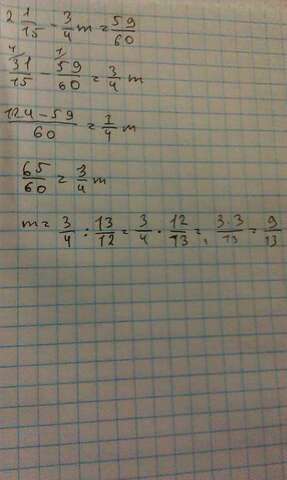 2 1/15 - 3/4 m = 59/60
4 1
31/15 - 59/60 = 3/4 m
124-59/60 = 3/4 m
65/60 = 3/4 m
m = 3/4 : 13/12 = 3/4 · 12/13 = 3·3/13 = 9/13